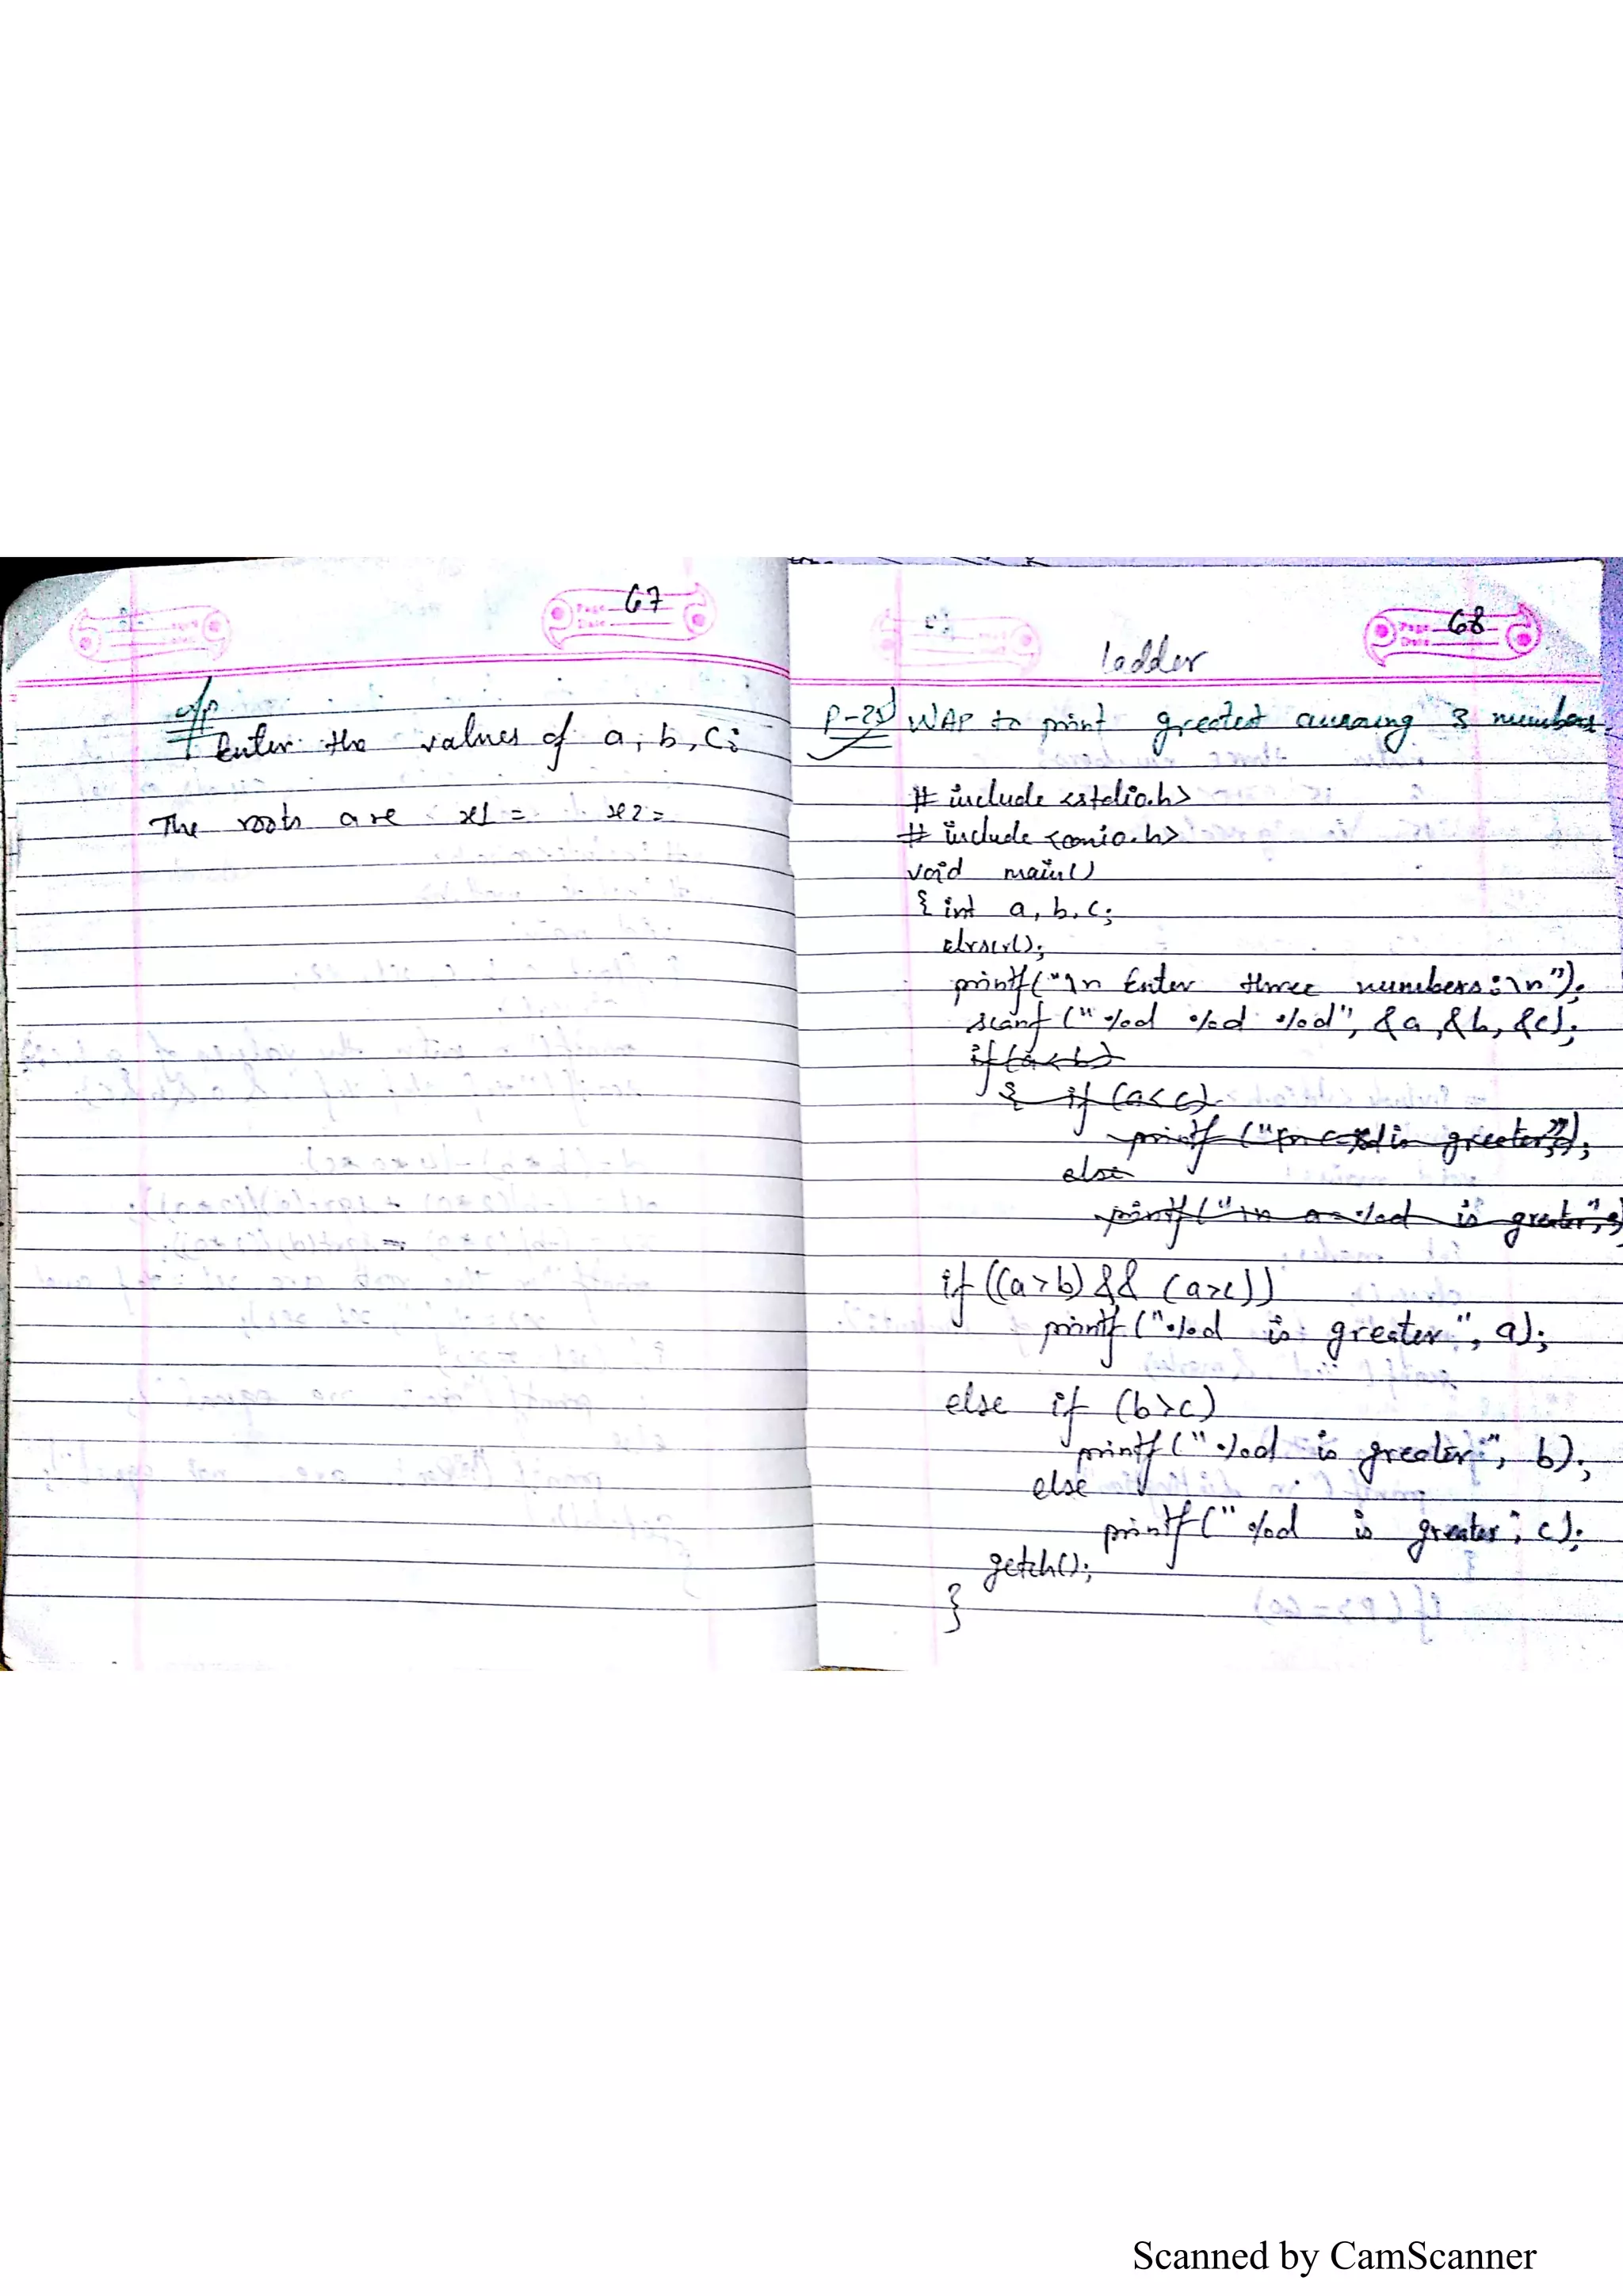 67
o/p
Enter the values of a, b, c:
The roots are x1 = x2 =
68
ladder
P-25) WAP to print greatest among 3 numbers.
# include <stdio.h>
# include <conio.h>
void main()
{ int a, b, c;
clrscr();
printf("\n Enter three numbers:\n");
scanf ("%d %d %d", &a, &b, &c);
if (a < b)
{ if (a < c)
printf ("\n c=%d is greater");
else
printf ("\n a = %d is greater",
if ((a>b) && (a>c))
printf ("%d is greater", a);
else if (b>c)
printf ("%d is greater", b);
else
printf ("%d is greater", c);
getch();
}
Scanned by CamScanner